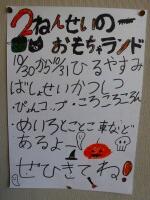 2ねんせいの
おもちゃランド
10/30から10/31ひるやすみ
ばしょせいかつしつ
・ぴょんコップ・ころころころん
・めいろとことこ車など
あるよー
ぜひきてね!